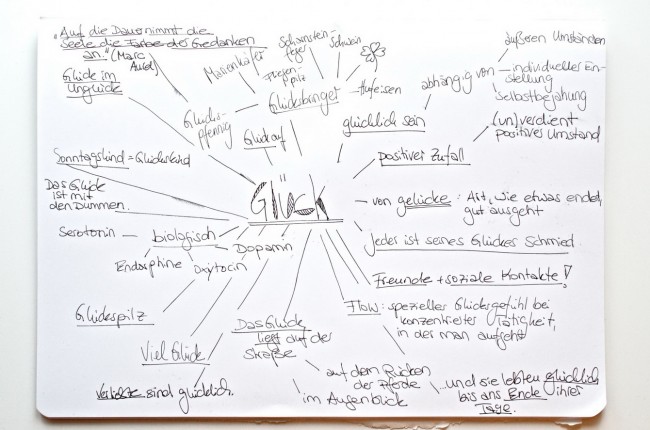 "Auf die Dauer nimmt die
Seele die Farbe der Gedanken
an." (Marc
Aurel)
Glück im
Unglück
Marienkäfer
Schornstein-
feger
Schwein
Fliegen-
pilz
Glücksbringer
Hufeisen
Glücks-
pfennig
Glück auf
glücklich sein
abhängig von
äußeren Umständen
individueller Ein-
stellung
Selbstbejahung
(un)verdient
positiver Umstand
positiver Zufall
Sonntagskind = Glückskind
Das Glück
ist mit
den Dummen.
Glück
von gelücke: Art, wie etwas endet,
gut ausgeht
Jeder ist seines Glückes Schmied
Serotonin
biologisch
Dopamin
Endorphine
Oxytocin
Freunde + soziale Kontakte!
Flow: spezieller Glücksgefühl bei
konzentrierter Tätigkeit,
in der man aufgeht
Glückspilz
Viel Glück
Das Glück
liegt auf der
Straße
Verliebte sind glücklich.
auf dem Rücken
der Pferde
im Augenblick
...und sie lebten glücklich
bis ans Ende ihrer
Tage.